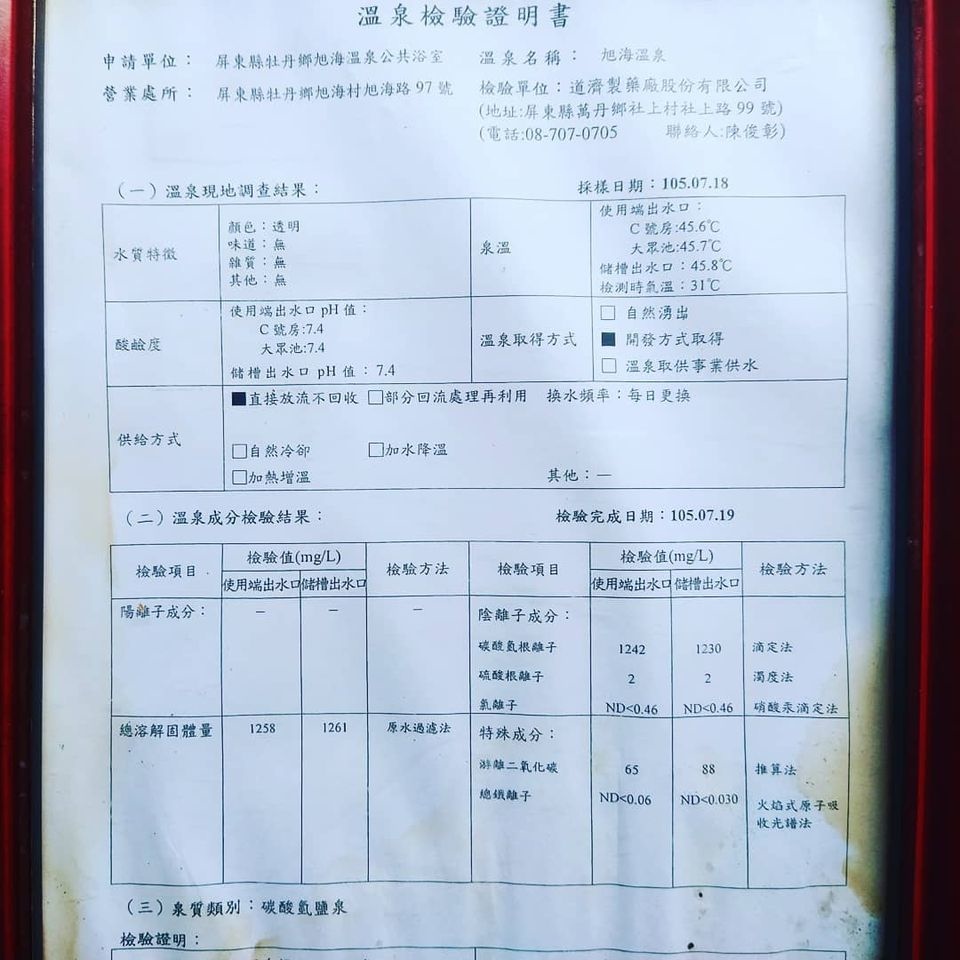 溫泉檢驗證明書
申請單位： 屏東縣牡丹鄉旭海溫泉公共浴室 溫泉名稱： 旭海溫泉
營業處所： 屏東縣牡丹鄉旭海村旭海路97號 檢驗單位：道濟製藥廠股份有限公司
(地址:屏東縣萬丹鄉社上村社上路99號)
(電話:08-707-0705 聯絡人:陳俊彰)
（一）溫泉現地調查結果： 採樣日期：105.07.18
水質特徵
顏色：透明
味道：無
雜質：無
其他：無
泉溫
使用端出水口：
C號房:45.6℃
大眾池:45.7℃
儲槽出水口：45.8℃
檢測時氣溫：31℃
酸鹼度
使用端出水口pH值：
C號房:7.4
大眾池:7.4
儲槽出水口pH值：7.4
溫泉取得方式
□ 自然湧出
■ 開發方式取得
□ 溫泉取供事業供水
供給方式
■直接放流不回收 □部分回流處理再利用 換水頻率：每日更換
□自然冷卻 □加水降溫
□加熱增溫 其他：—
（二）溫泉成分檢驗結果： 檢驗完成日期：105.07.19
檢驗項目 檢驗值(mg/L) 檢驗方法 檢驗項目 檢驗值(mg/L) 檢驗方法
使用端出水口 儲槽出水口 使用端出水口 儲槽出水口
陽離子成分： — — — 陰離子成分：
碳酸氫根離子 1242 1230 滴定法
硫酸根離子 2 2 濁度法
氯離子 ND<0.46 ND<0.46 硝酸汞滴定法
總溶解固體量 1258 1261 原水過濾法 特殊成分：
游離二氧化碳 65 88 推算法
總鐵離子 ND<0.06 ND<0.030 火焰式原子吸
收光譜法
（三）泉質類別：碳酸氫鹽泉
檢驗證明：